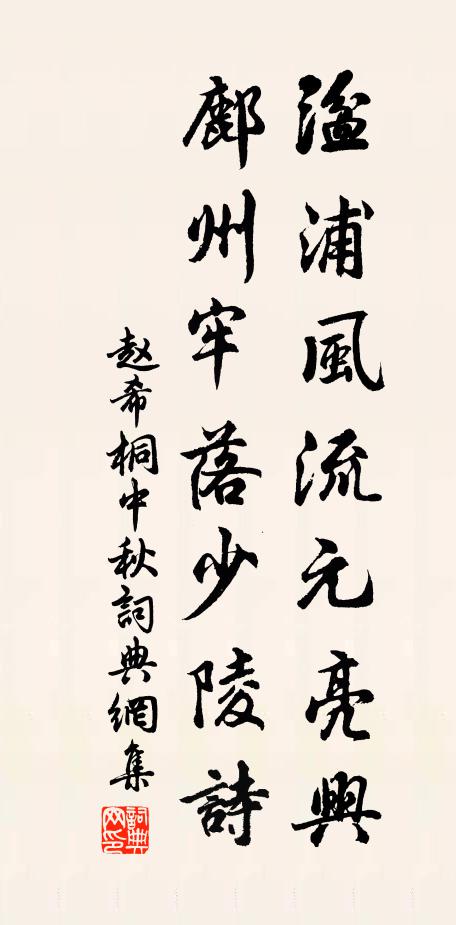 湓浦風流元亮興
鄜州牢落少陵詩
赵希桐中秋詞典網集
詞典网印